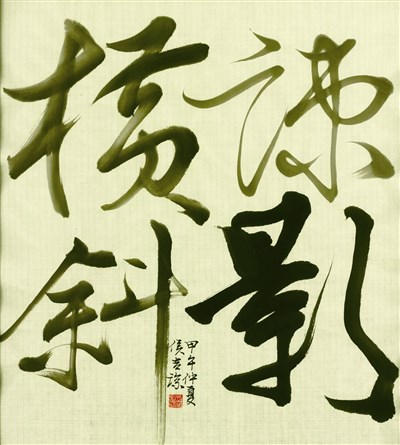 疎影
橫斜
甲午仲夏
侯吉諒